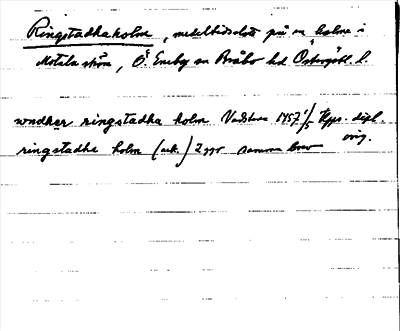 Ringstadhaholm, medeltidsslott på en holme i
Motala ström, Ö. Eneby sn Bråbo hd Östergötl. l.
wndher ringstadha holm Vadstena 1457 1/5 Upps. dipl. orig.
ringstadha holm (ack.) 2 ggr samma brev